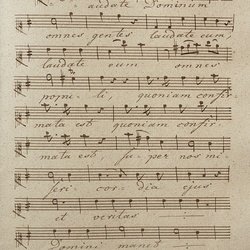 audate Dominum
omnes gentes laudate eum,
laudate eum omnes
populi, quoniam confir
mata est quoniam confir
mata est, super nos mi
seri cor dia ejus
et veritas
Domini manet